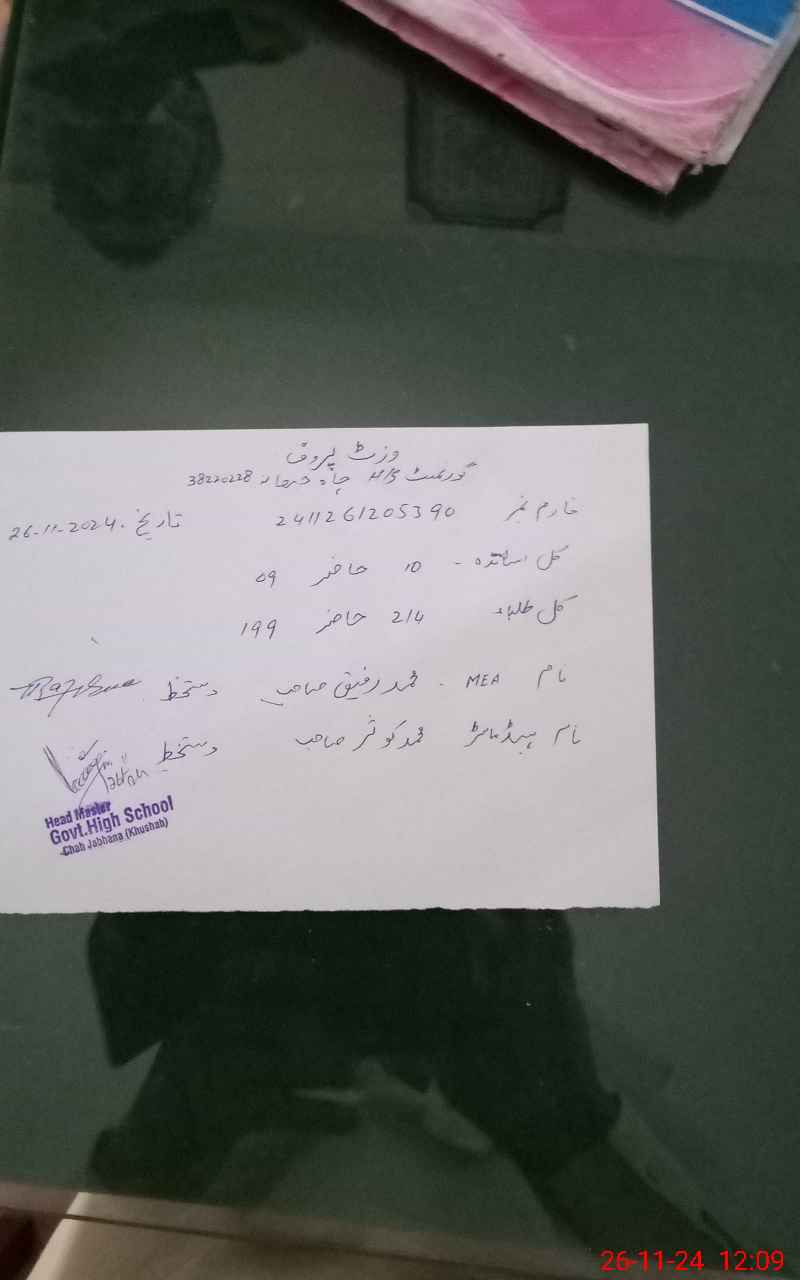 وزٹ پروف
گورنمنٹ H/S چاہ جبھانہ 38220228
فارم نمبر 2411261205390 تاریخ 26-11-2024.
کل اساتذہ - 10 حاضر 09
کل طلباء 214 حاضر 199
نام MEA - محمد رفیق صاحب دستخط
نام ہیڈ ماسٹر محمد کوثر صاحب دستخط
Head Master
Govt.High School
Chah Jabhana (Khushab)
26-11-24 12:09